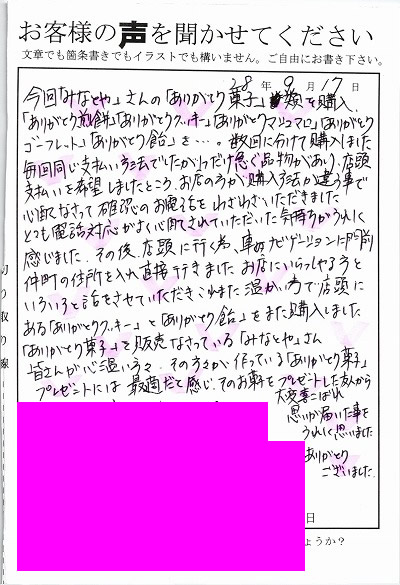 お客様の声を聞かせてください
文章でも箇条書きでもイラストでも構いません。ご自由にお書き下さい。
28年9月17日
今回みなとや」さんの「ありがとり菓子」数種を購入、
「ありがとり煎餅」「ありがとりクッキー」「ありがとりマシュマロ」「ありがとり
ゴーフレット」「ありがとり飴」を…。数回に分けて購入しました
毎回同じ支払い方法でしたが1つだけ急ぐ品物があり、店頭
支払いを希望しましたところ、お店の方が購入方法が違う事で
心配なさって確認のお電話をわざわざいただきました
とても電話対応がよく心配されていただいた気持ちがうれしく
感じました。その後、店頭に行く為、車のナビゲーションに門前
仲町の住所を入れ直接行きました。お店にいらっしゃる方と
いろいろと話をさせていただきこれまた温かい方で店頭に
ある「ありがとりクッキー」と「ありがとり飴」をまた購入しました
「ありがとり菓子」を販売なさっている「みなとや」さん
皆さんが心温い方々、その方々が作っている「ありがとり菓子」
プレゼントには最適だと感じ、そのお菓子をプレゼントした友人から
大変喜こばれ
思いが届いた事を
うれしく思いました
ありがとり
ございました。
日
ょうか？
切り取り線